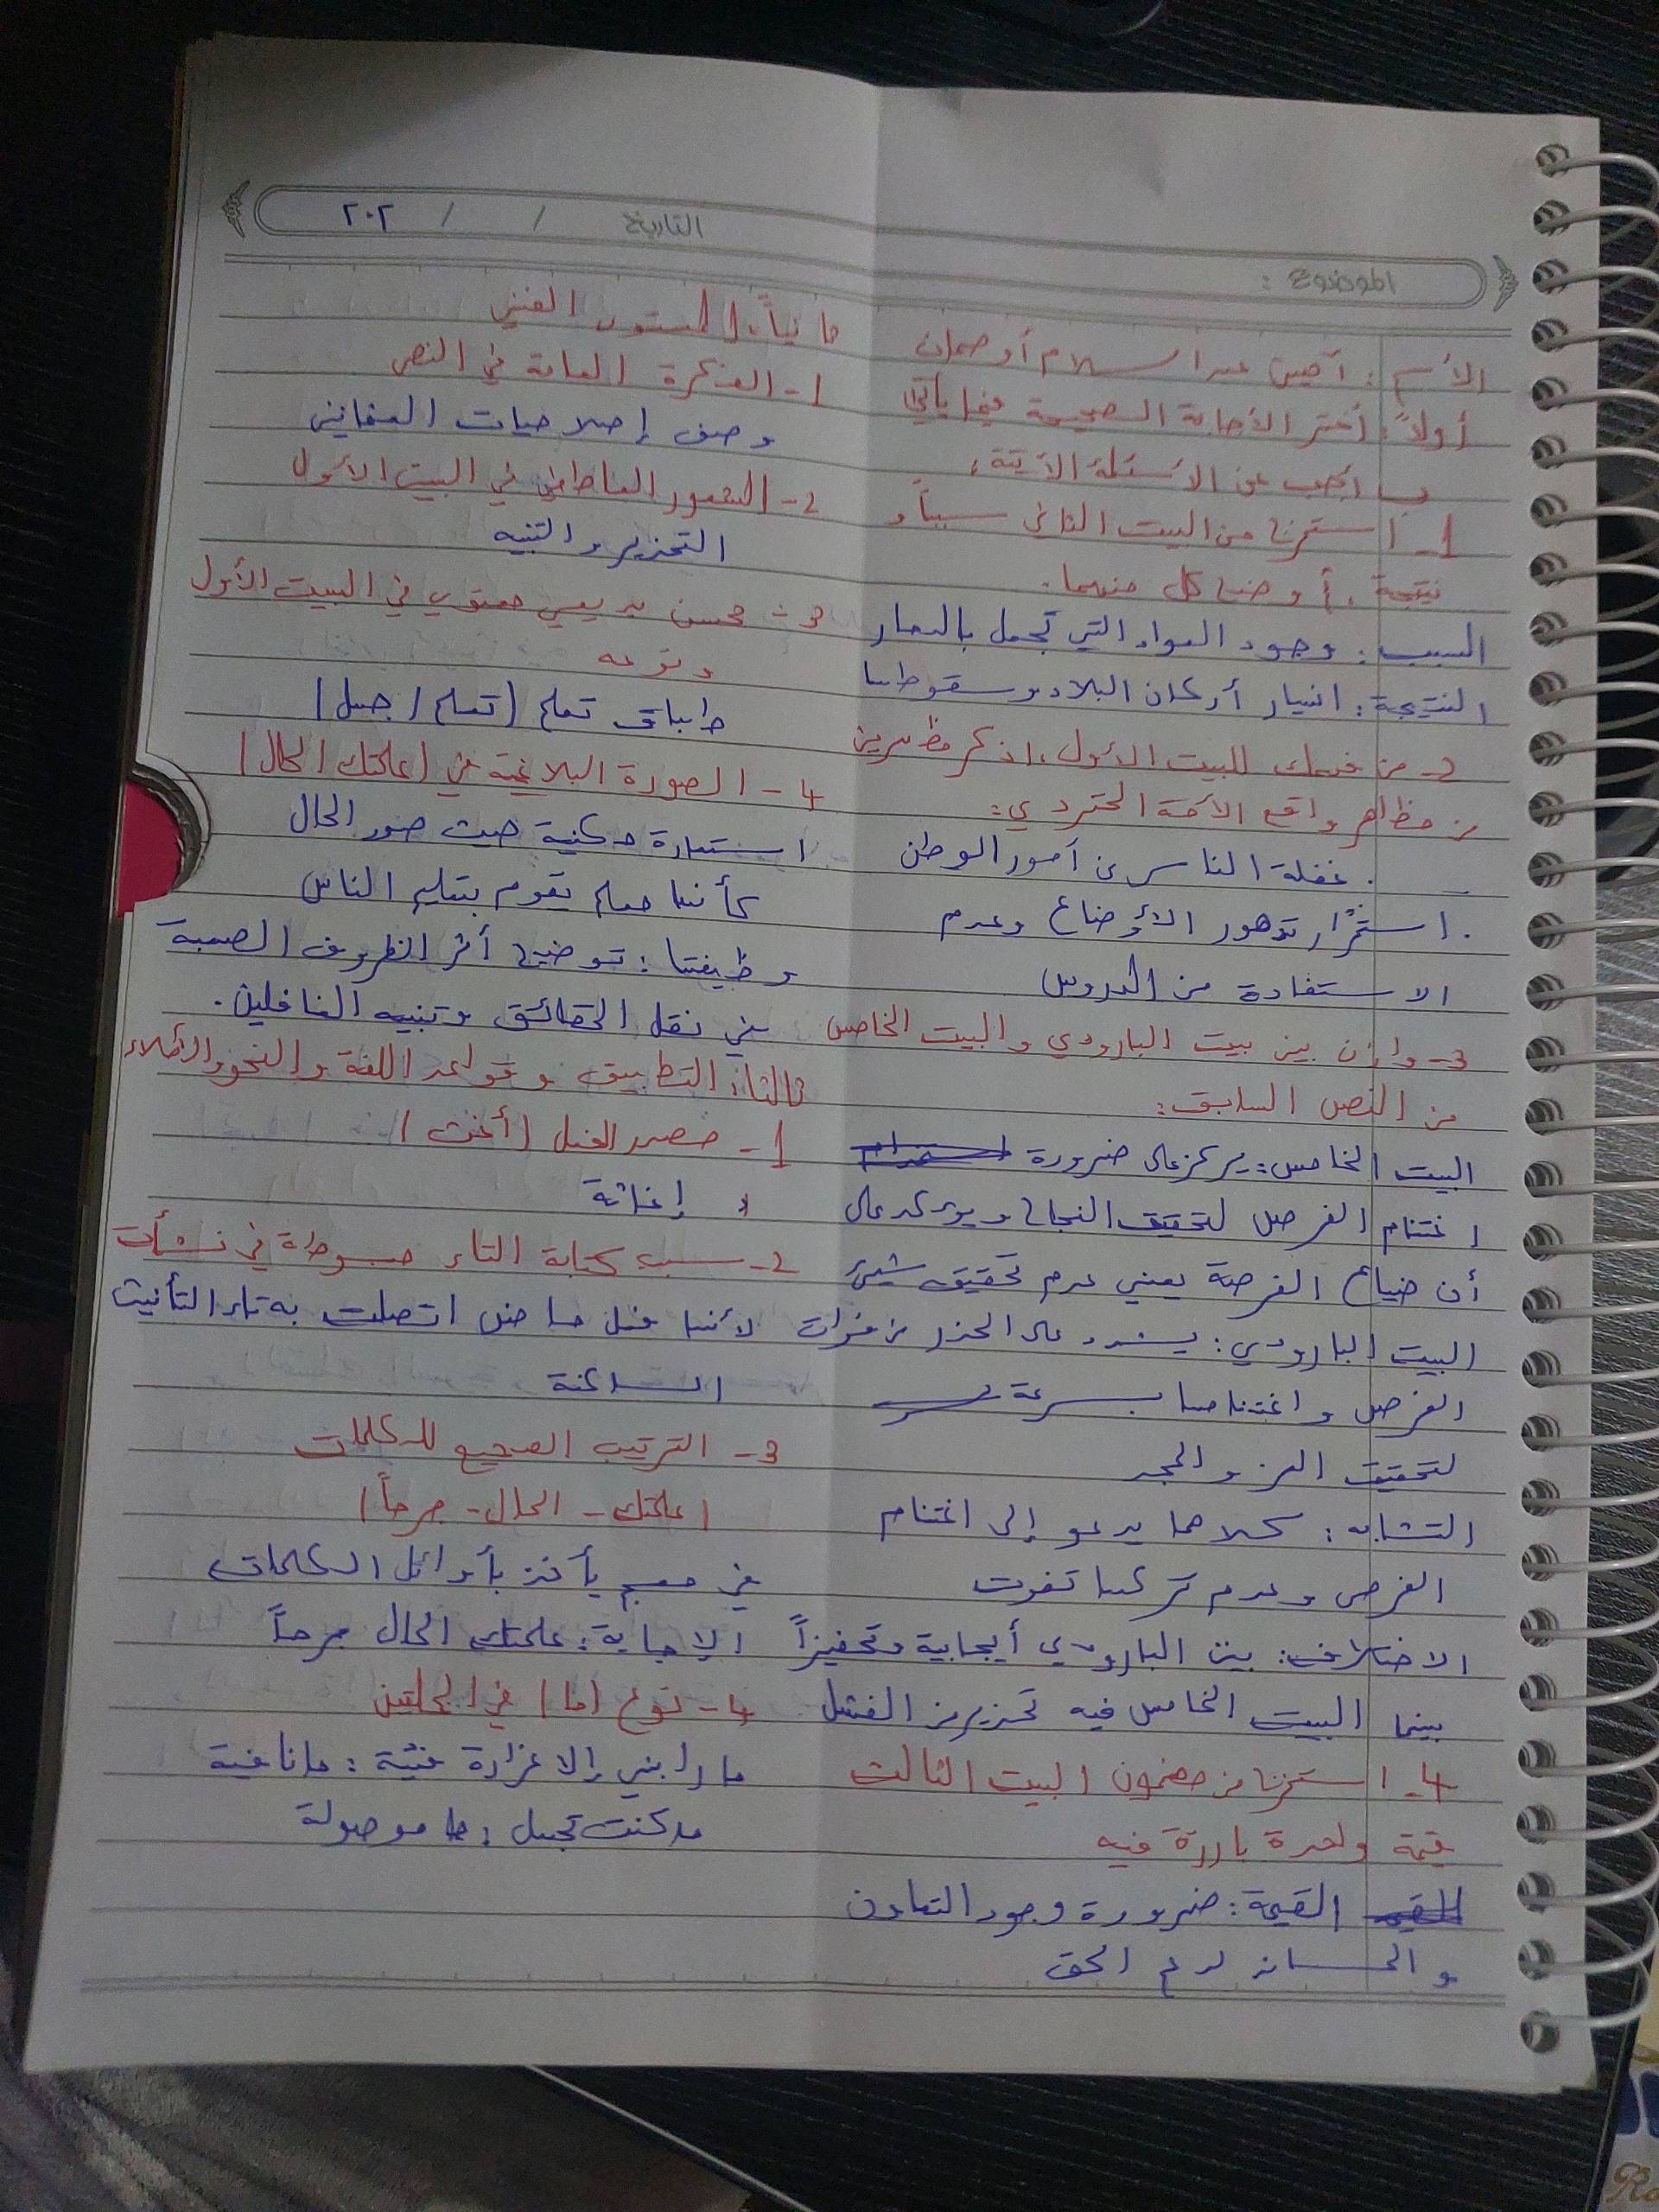 الموضوع :
الأسم : عبد السلام أوصمان
أولاً: أختر الأجابة الصحيحة فيما يأتي
ب أجب عن الأسئلة الآتية
1- استخرج من البيت الثاني سبباً و
نتيجة . أوضح كل منهما .
السبب : وجود المواد التي تجمل بالعار
النتيجة : انهيار أركان البلاد وسقوطها
2- من فهمك للبيت الأول، اذكر مظهرين
من مظاهر واقع الأمة المتردي :
. غفلة الناس عن أمور الوطن
. استمرار تدهور الأوضاع وعدم
الاستفادة من الدروس
3- وازن بين بيت البارودي والبيت الخامس
من النص السابق :
البيت الخامس : يركز على ضرورة
اغتنام الفرص لتحقيق النجاح ويؤكد على
أن ضياع الفرصة يعني عدم تحقيق شيئ
البيت البارودي : يشدد على الحذر من فوات
الفرص و اغتنامها بسرعة
لتحقيق العز والمجد
التشابه : كلاهما يدعو إلى اغتنام
الفرص وعدم تركها تفوت
الاختلاف : بيت البارودي أيجابية وتحفيزاً
بينما البيت الخامس فيه تحزير من الفشل
4- استخرج من مضمون البيت الثالث
قيمة واحدة بارزة فيه
القيمة : ضرورة وجود التعاون
و لدعم الحق
التاريخ / / ٢٠٢
ثانياً: المستوى الفني
1- الفكرة العامة في النص
وصف إصلاحيات العثمانيين
2- الشعور العاطفي في البيت الأول
التحزير والتنبيه
3- محسن بديعي معنوي في البيت الأول
ونوعه
طباق تعلم (تعلم / جهل)
4- الصورة البلاغية في (علمتك الحال)
استعارة مكنية حيث صور الحال
كأنها معلم يقوم بتعليم الناس
وظيفتها : توضيح أثر الظروف الصعبة
في نقل الحقائق وتنبيه الغافلين .
ثالثاً: التطبيق و قواعد اللغة والنحو والأملاء
1- مصدر الفعل (أغث)
إغاثة
2- سبب كتابة التاء مبسوطة في نشأت
لأنها فعل ماض اتصلت به تاء التأنيث
الساكنة
3- الترتيب الصحيح للكلمات
(علمتك - الحال - مرحاً)
في معجم يأخذ بأوائل الكلمات
الإجابة : علمتك الحال مرحاً
4- نوع (ما) في الجملتين
ما رابني إلا غزارة فتية : ما نافية
ما كنت تجهل : ما موصولة